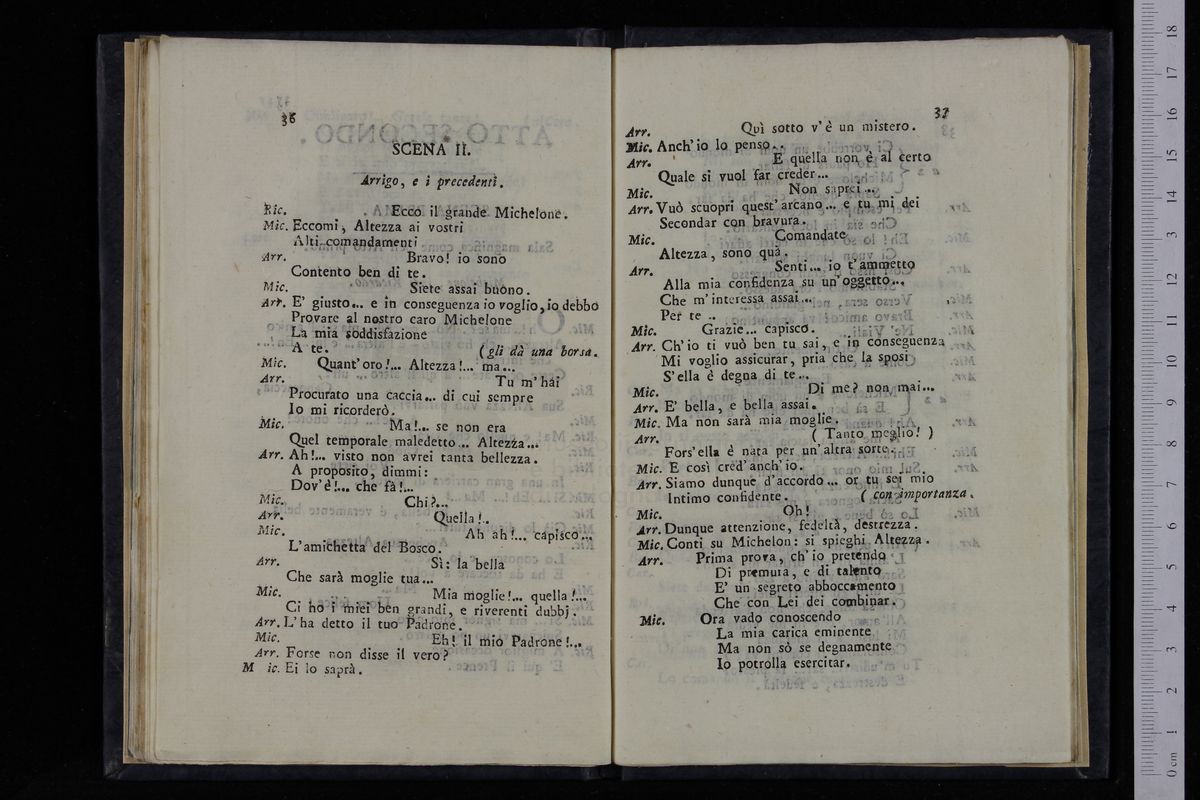 36
SCENA II.
Arrigo, e i precedenti.
Ric. Ecco il grande Michelone.
Mic. Eccomi, Altezza ai vostri
Alti comandamenti
Arr. Bravo! io sono
Contento ben di te.
Mic. Siete assai buono.
Arr. E' giusto... e in conseguenza io voglio, io debbo
Provare al nostro caro Michelone
La mia soddisfazione
A te. (gli dà una borsa.
Mic. Quant' oro!... Altezza!... ma...
Arr. Tu m'hai
Procurato una caccia... di cui sempre
Io mi ricorderò.
Mic. Ma!... se non era
Quel temporale maledetto... Altezza...
Arr. Ah!... visto non avrei tanta bellezza.
A proposito, dimmi:
Dov'è!... che fà!...
Mic. Chi?...
Arr. Quella!..
Mic. Ah ah!... capisco...
L'amichetta del Bosco.
Arr. Sì: la bella
Che sarà moglie tua...
Mic. Mia moglie!... quella!...
Ci ho i miei ben grandi, e riverenti dubbj.
Arr. L'ha detto il tuo Padrone.
Mic. Eh! il mio Padrone!...
Arr. Forse non disse il vero?
M ic. Ei lo saprà.
37
Arr. Quì sotto v'è un mistero.
Mic. Anch'io lo penso..
Arr. E quella non è al certo
Quale si vuol far creder...
Mic. Non saprei...
Arr. Vuò scuopri quest'arcano... e tu mi dei
Secondar con bravura.
Mic. Comandate
Altezza, sono quà.
Arr. Senti... io t'ammetto
Alla mia confidenza su un'oggetto...
Che m'interessa assai...
Per te ..
Mic. Grazie... capisco.
Arr. Ch'io ti vuò ben tu sai, e in conseguenza
Mi voglio assicurar, pria che la sposi
S'ella è degna di te...
Mic. Di me? non mai...
Arr. E' bella, e bella assai.
Mic. Ma non sarà mia moglie.
Arr. (Tanto meglio!)
Fors'ella è nata per un'altra sorte.
Mic. E così cred'anch'io.
Arr. Siamo dunque d'accordo... or tu sei mio
Intimo confidente. (con importanza.
Mic. Oh!
Arr. Dunque attenzione, fedeltà, destrezza.
Mic. Conti su Michelon: si spieghi Altezza.
Arr. Prima prova, ch'io pretendo
Di premura, e di talento
E' un segreto abboccamento
Che con Lei dei combinar.
Mic. Ora vado conoscendo
La mia carica eminente
Ma non sò se degnamente
Io potrolla esercitar.